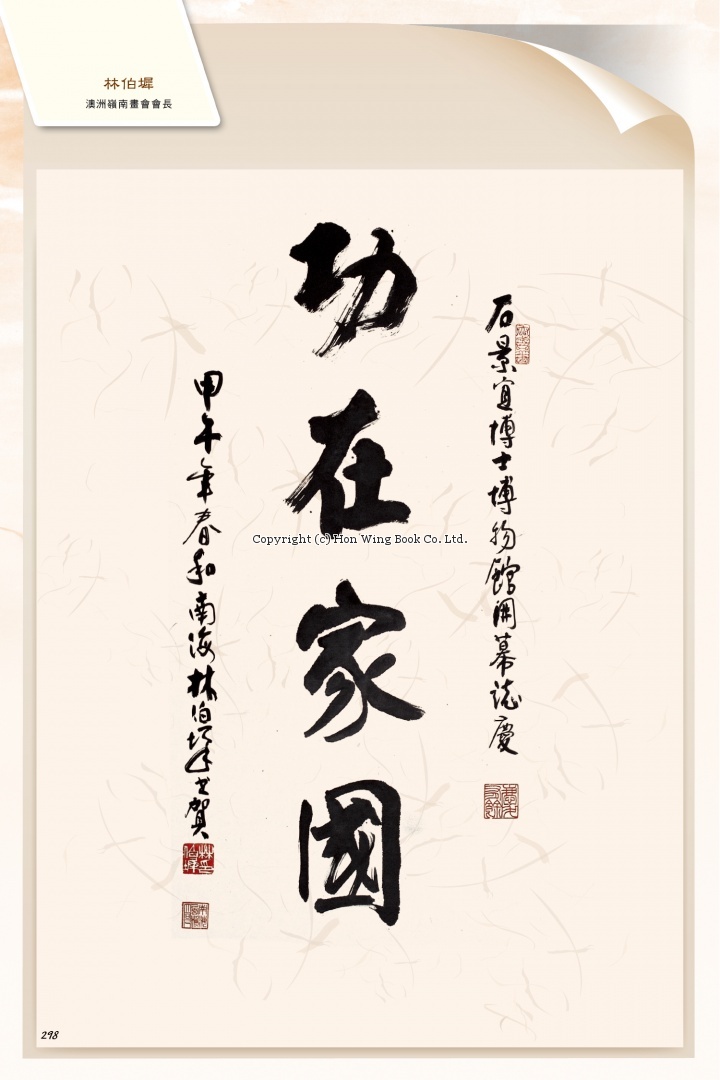 林伯墀
澳洲嶺南畫會會長
石景宜博士博物館開幕誌慶
功在家國
甲午年春和南海林伯墀書賀
Copyright (c) Hon Wing Book Co. Ltd.
298